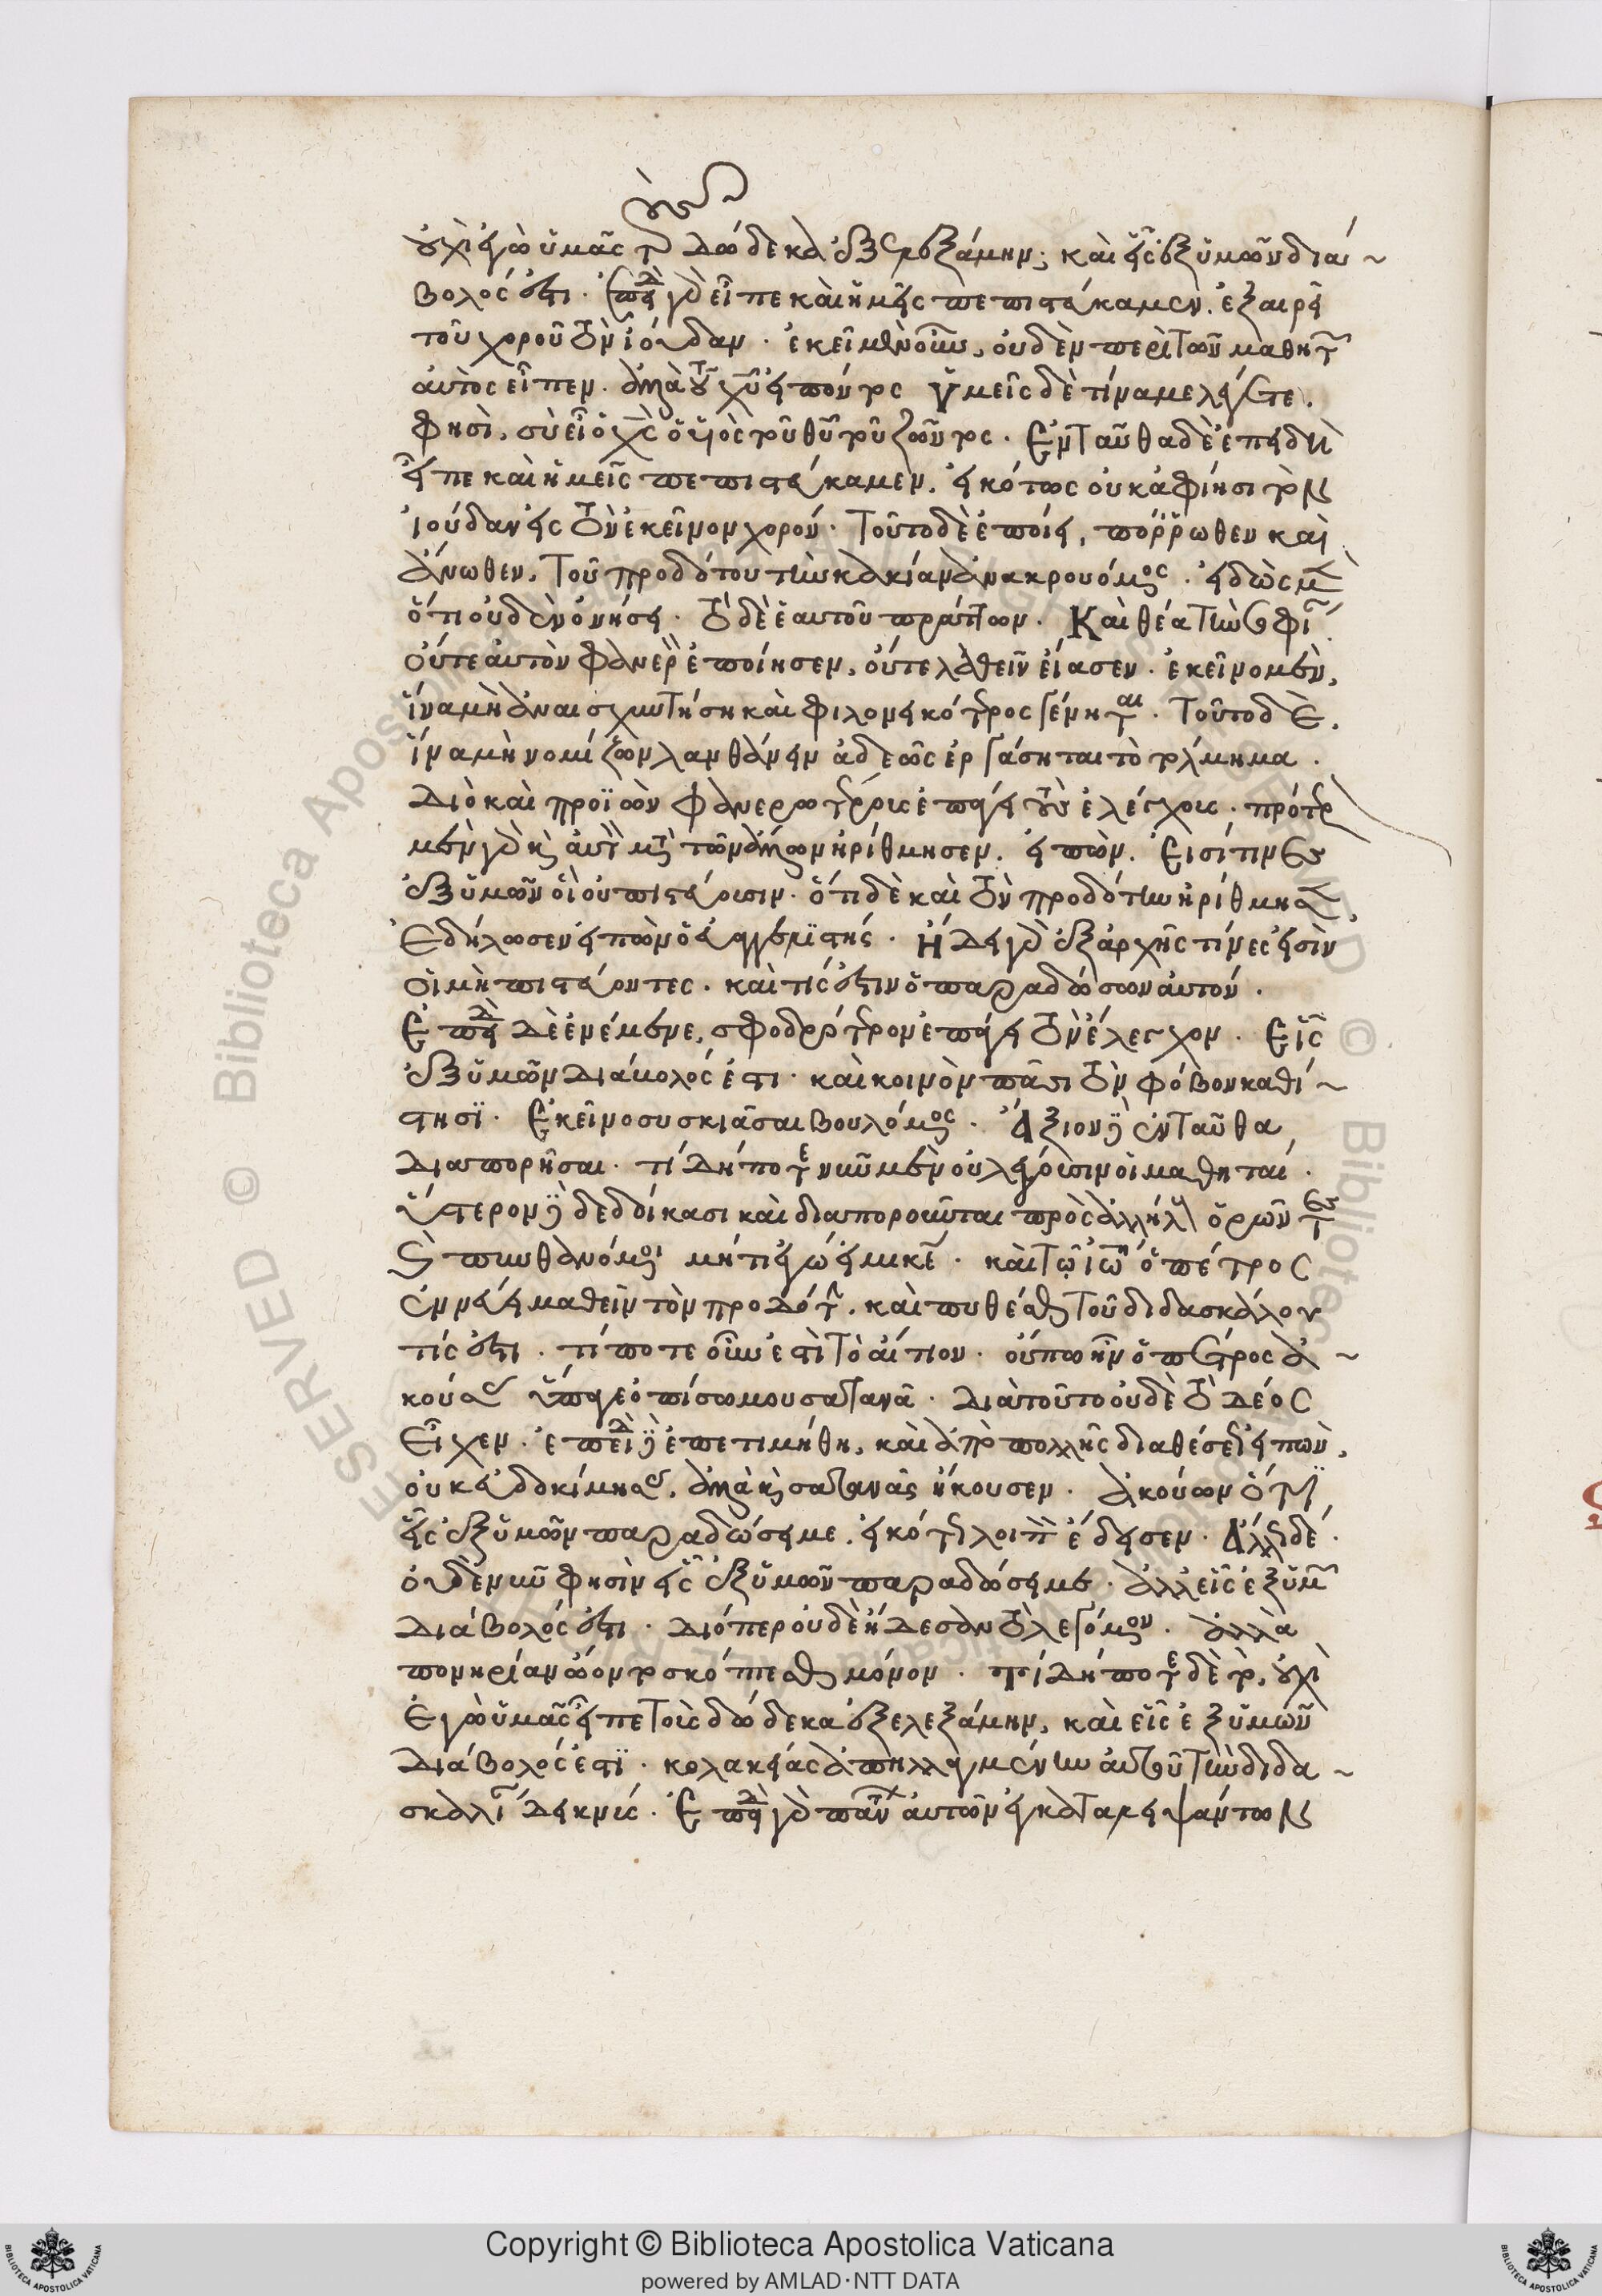 οὐχὶ ἐγὼ ὑμᾶς τοὺς δώδεκα ἐξελεξάμην; καὶ εἷς ἐξ ὑμῶν διά~
βολός ἐστι. ἐπειδὴ γὰρ εἶπε καὶ ἡμεῖς πεπιστεύκαμεν, ἐξαιρεῖ
τοῦ χοροῦ τὸν ἰούδαν. ἐκεῖ μὲν οὖν, οὐδὲν περὶ τῶν μαθητῶν
αὐτὸς εἶπεν. ἀλλὰ τοῦ χῦ εἰπόντος ὑμεῖς δὲ τίνα με λέγετε.
φησὶ, σὺ εἶ ὁ χς ὁ υἱὸς τοῦ θῦ τοῦ ζῶντος. Ἐνταῦθα δὲ ἐπειδὴ
εἶπε καὶ ἡμεῖς πεπιστεύκαμεν, εἰκότως οὐκ ἀφίησι τὸν
ἰούδαν εἰς τὸν ἐκεῖνον χορόν. Τοῦτο δὲ ἐποίει, πόρρωθεν καὶ
ἄνωθεν, τοῦ προδότου τὴν κακίαν ἀνακρουόμενος. εἰδὼς μὲν
ὅτι οὐδὲν ὀνήσει. τὸ δὲ ἑαυτοῦ πράττων. Καὶ θέα τὴν σοφίαν
οὔτε αὐτὸν φανερὸν ἐποίησεν, οὔτε λαθεῖν εἴασεν. ἐκεῖνο μὲν,
ἵνα μὴ ἀναισχυντήση καὶ φιλονεικότερος γένηται. Τοῦτο δὲ,
ἵνα μὴ νομίζων λανθάνειν ἀδεῶς ἐργάσηται τὸ τόλμημα.
Διὸ καὶ προϊὼν φανερωτέροις ἐπάγει τοὺς ἐλέγχους. πρότερον
μὲν γὰρ καὶ αὐτὸν μετὰ τῶν ἄλλων ἠρίθμησεν, εἰπών. Εἰσί τινες
ἐξ ὑμῶν οἳ οὐ πιστεύουσιν. ὅτι δὲ καὶ τὸν προδότην ἠρίθμησεν,
Ἐδήλωσεν εἰπὼν ὁ εὐαγγελιστής. Ἤδει γὰρ ἐξ ἀρχῆς τίνες εἰσὶν
οἱ μὴ πιστεύοντες. καὶ τίς ἐστιν ὁ παραδώσων αὐτόν.
Ἐπειδὴ δὲ ἐνέμενε, σφοδρότερον ἐπάγει τὸν ἔλεγχον. Εἷς
ἐξ ὑμῶν διάβολός ἐστι. καὶ κοινὸν πᾶσι τὸν φόβον καθί~
στησι. Ἐκεῖνο συσκιᾶσαι βουλόμενος. Ἄξιον δὲ ἐνταῦθα
διαπορῆσαι. τί δήποτε νῦν μὲν οὐ λέγουσιν οἱ μαθηταί.
ὕστερον δὲ δεδοίκασι καὶ διαποροῦνται πρὸς ἀλλήλους ὁρῶντες
καὶ πυνθανόμενοι μήτι ἐγώ εἰμι κε. καὶ τῷ ἰωάννη ὁ πέτρος
ἐννεύει μαθεῖν τὸν προδότην, καὶ πυθέσθαι τοῦ διδασκάλου
τίς ἐστι. τί ποτε οὖν ἐστὶ τὸ αἴτιον. οὔπω ἦν ὁ πέτρος ἀ~
κούσας ὕπαγε ὀπίσω μου σατανᾶ. Διὰ τοῦτο οὐδὲ τὸ δέος
εἶχεν. ἐπειδὴ δὲ ἐπετιμήθη, καὶ ἀπὸ πολλῆς διαθέσεως εἰπὼν,
οὐκ εὐδοκίμησεν, ἀλλὰ καὶ σατανᾶς ἤκουσεν. ἀκούων ὅτι
εἷς ἐξ ὑμῶν παραδώσει με, εἰκότως λοιπὸν ἔδεισεν. Ἄλλως δὲ
οὐδὲν νῦν φησὶν εἷς ἐξ ὑμῶν παραδώσει με. ἀλλ' εἷς ἐξ ὑμῶν
διάβολός ἐστι. διόπερ οὐδὲ ᾔδεσαν τὸ λεγόμενον. ἀλλὰ
πονηρίαν ᾤοντο σκόπτεσθαι μόνον. τί δήποτε δὲ τὸ, οὐχὶ
Ἐγὼ ὑμᾶς εἶπε τοὺς δώδεκα ἐξελεξάμην, καὶ εἷς ἐξ ὑμῶν
διάβολός ἐστι. κολακείας ἀπηλλαγμένην αὐτοῦ τὴν διδα~
σκαλίαν δεικνύς. Ἐπειδὴ γὰρ πάντων αὐτὸν ἐγκαταλειψάντων